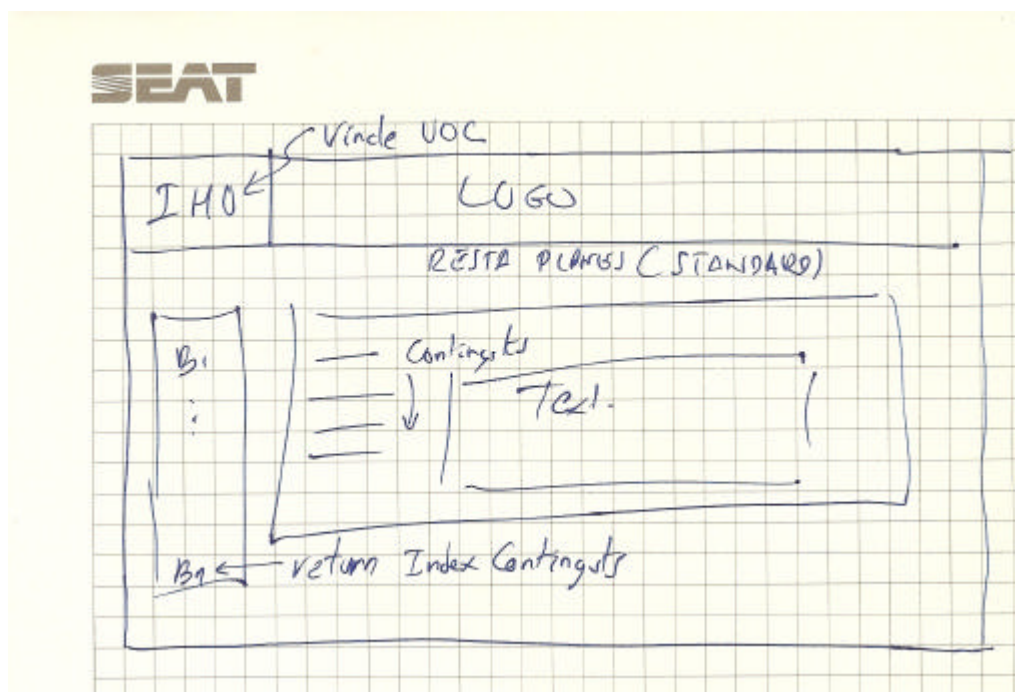 SEAT
Vincle UOC
IMO
LOGO
RESTA PLANES (STANDARD)
B1
Continguts
Text.
Bn
return Index Continguts